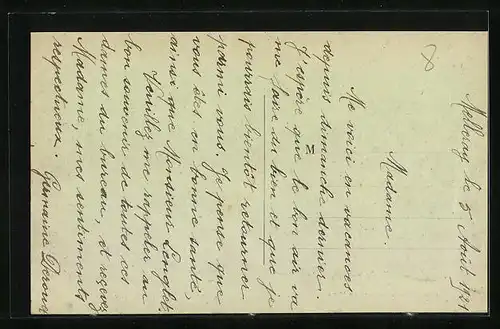 Melleray le 5 Août 1921
Madame.
Me voici en vacances
depuis dimanche dernier.
J'espère que le bon air va
me faire du bien et que je
pourrais bientôt retourner
parmi vous. Je pense que
vous êtes en bonne santé,
ainsi que Monsieur Lenglet.
Veuillez me rappeler au
bon souvenir de toutes ces
dames du bureau, et recevez
Madame, mes sentiments
respectueux. Germaine